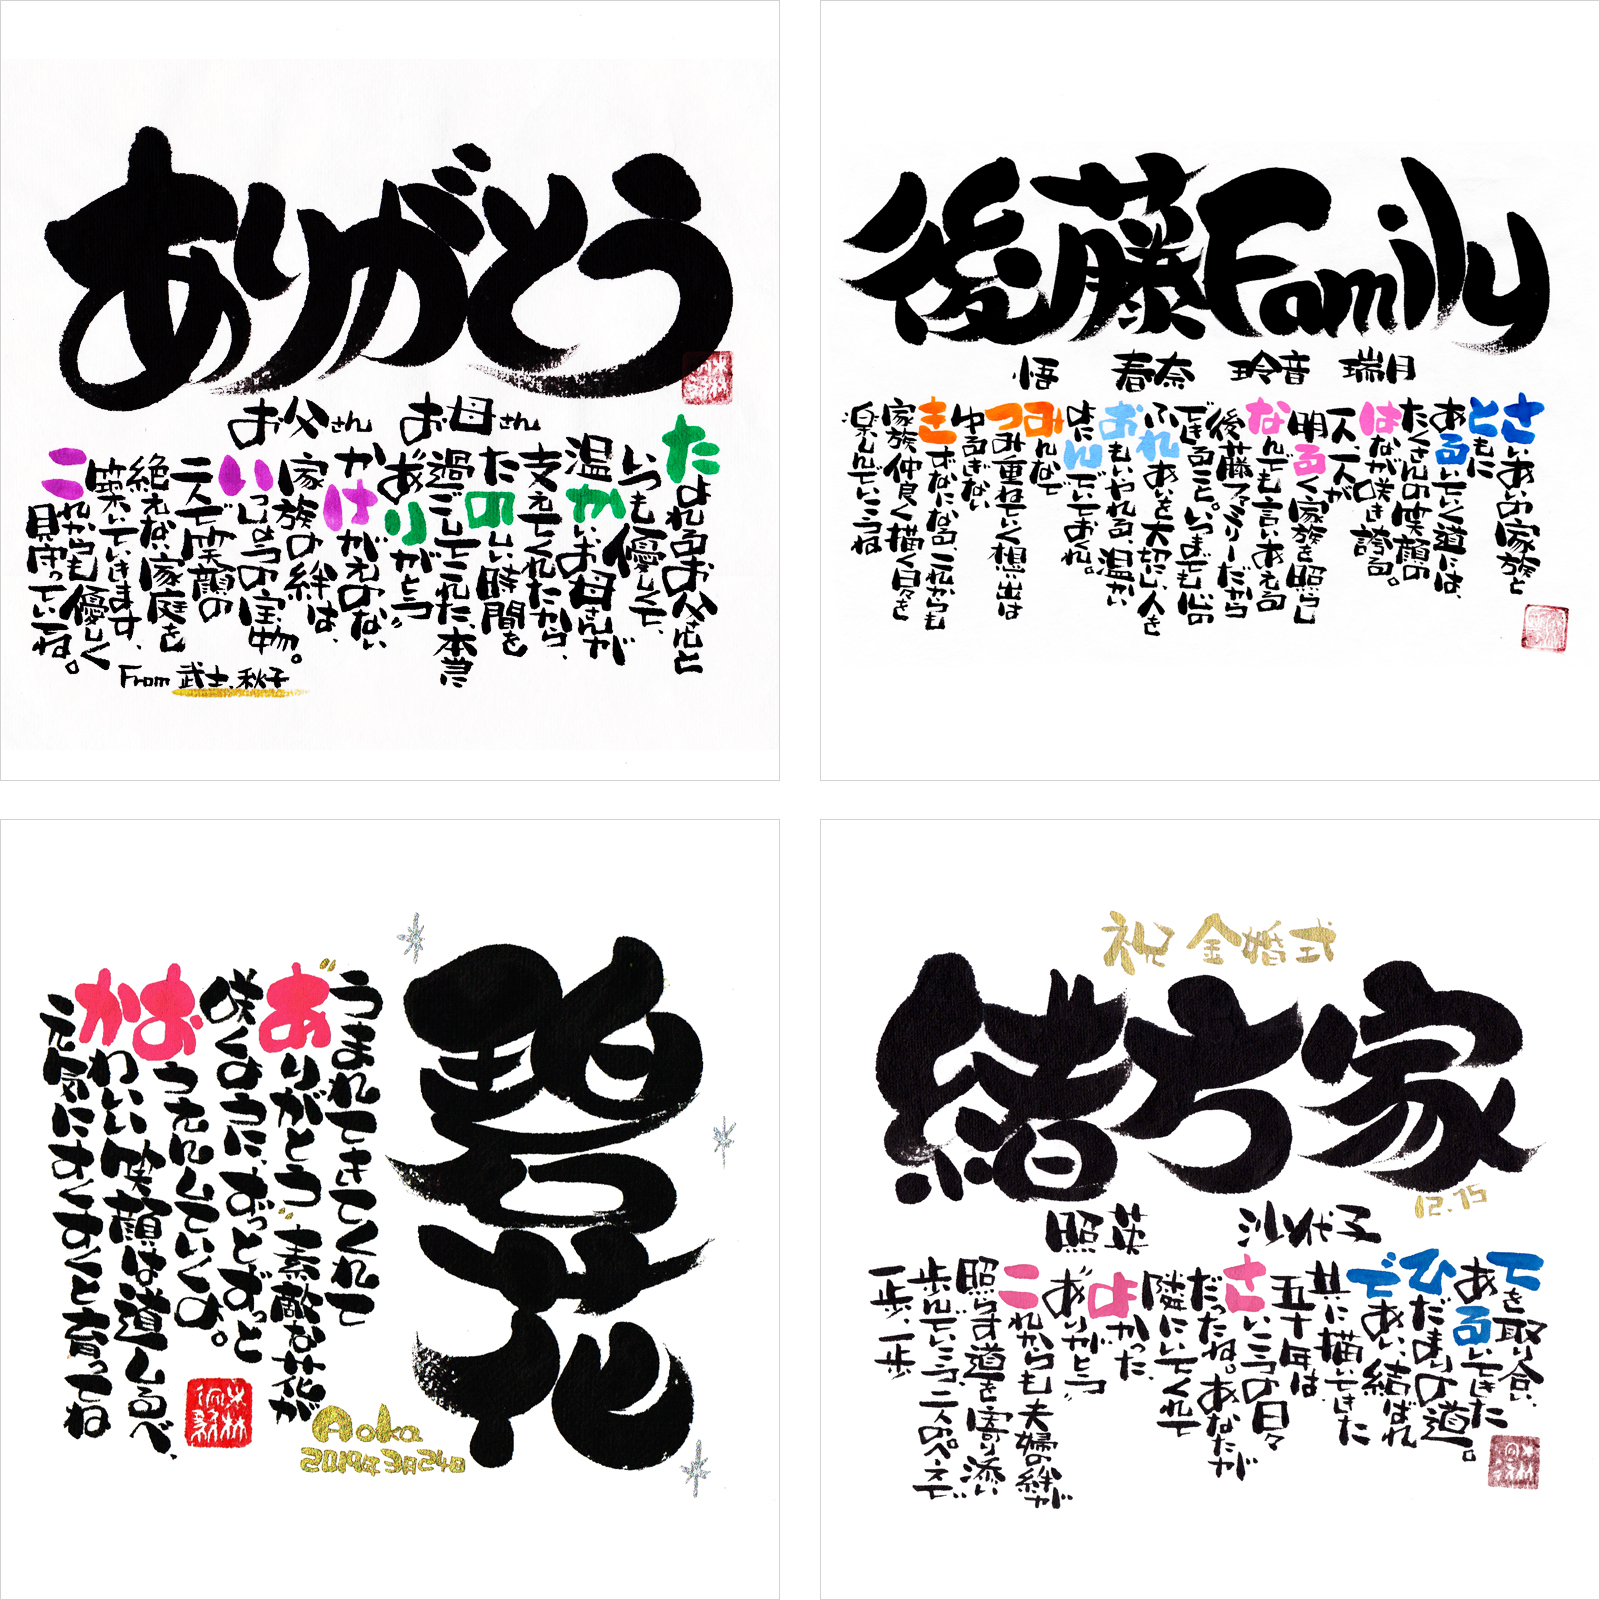 ありがとう
お父さん　お母さん
たよれるお父さんと
いつも優しくて、
温かいお母さんが
支えてくれたから、
たのしい時間を
過ごしてこれた、本当に
“ありがとう”
かけがえのない
家族の絆は、
いっしょうの宝物。
二人で笑顔の
絶えない家庭を
築いていきます、
これからも優しく
見守っていてね。
From 武士、秋子
後藤Family
悟　春奈　玲音　瑞月
さいあいの家族と
ともに
あるいていく道には、
たくさんの笑顔の
はながが咲き誇る。
一人一人が
明るく家族を照らし
なんでも言いあえる
後藤ファミリーだから
できること。いつまでも心の
ふれあいを大切にし人を
おもいやれる、温かい
よにんでいておれ。
みんなで
つみ重ねていく想い出は
ゆるぎない
きずなになる、これからも
家族仲良く描く日々を
楽しんでいこうね
碧花
うまれてきてくれて
“ありがとう”素敵な花が
咲くように、ずっとずっと
おうえんしていくよ。
かわいい笑顔は道しるべ、
元気にすくすくと育ってね
Aoka
2019年3月24日
祝 金婚式
緒方家
12.15
照英　沙代子
てを取り合い、
あるいてきた
ひだまりの道。
であい、結ばれ
共に描いてきた
五十年は、
さいこうの日々
だったね。あなたが
隣にいてくれて
よかった、
“ありがとう”
これからも夫婦の絆が
照らす道を寄り添い
歩んでいこう、二人のペースで
一歩、一歩